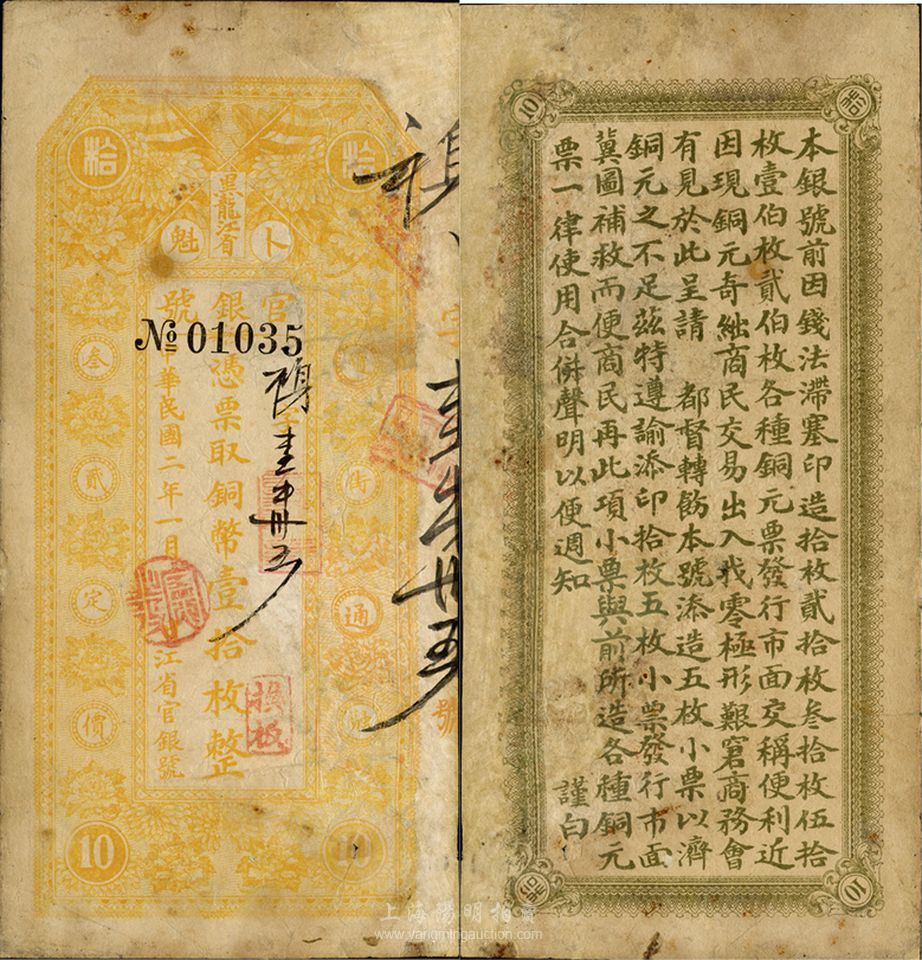 拾
拾
黑龍江省
卜
魁
官
銀
號
No 01035
憑票取銅幣壹拾枚整
華民國二年一月
江省官銀號
街
通
叁
貳
定
價
號
10
10
10
拾
本銀號前因錢法滯塞印造拾枚貳拾枚叁拾枚伍拾
枚壹伯枚貳伯枚各種銅元票發行市面交稱便利近
因現銅元奇絀商民交易出入找零極形艱窘商務會
有見於此呈請 都督轉飭本號添造五枚小票以濟
銅元之不足茲特遵諭添印拾枚五枚小票發行市面
冀圖補救而便商民再此項小票與前所造各種銅元
票一律使用合併聲明以便週知
謹白
10
上海陽明拍賣
www.yangmingauction.com